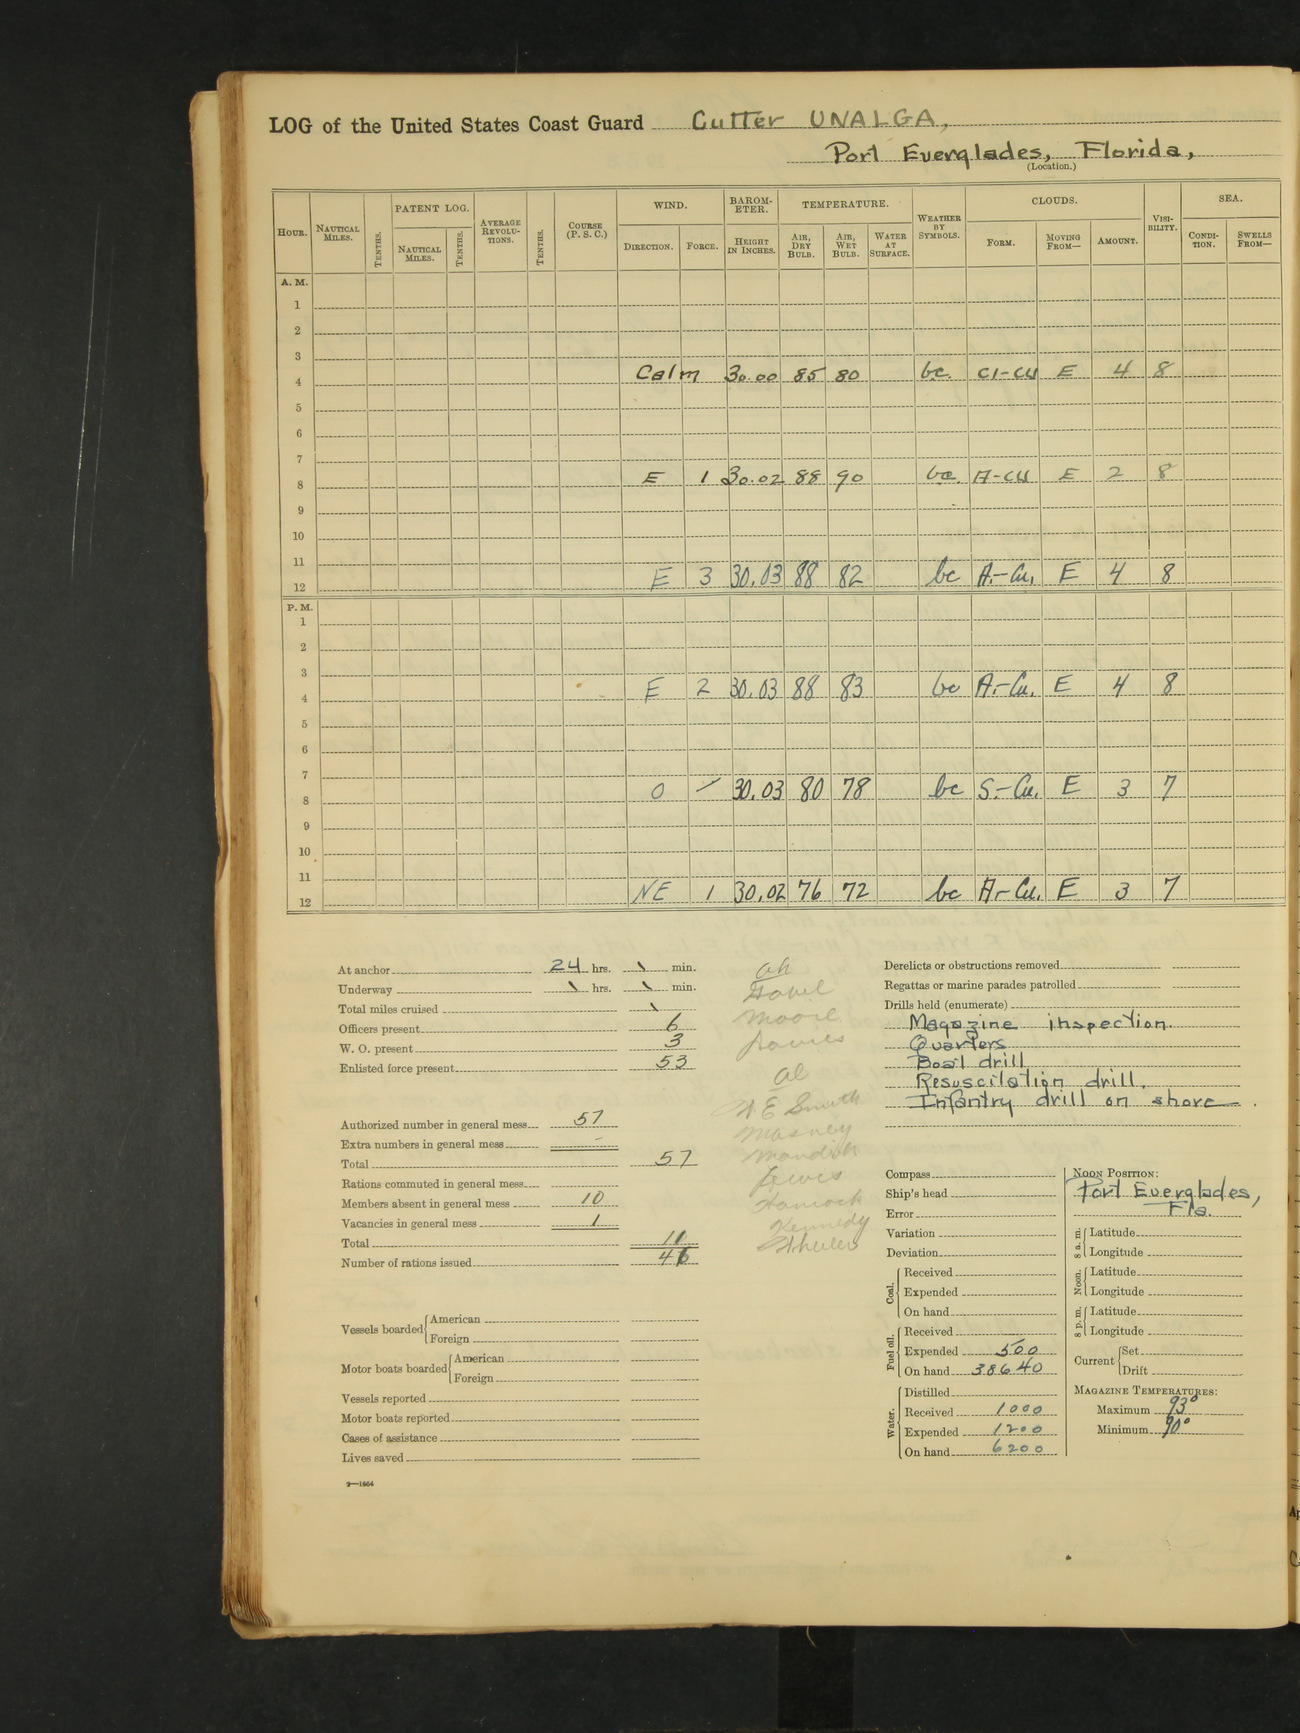 LOG of the United States Coast Guard Cutter UNALGA,
Port Everglades, Florida,
(Location.)
HOUR. NAUTICAL MILES. TENTHS. PATENT LOG. NAUTICAL MILES. TENTHS. AVERAGE REVOLU-TIONS. TENTHS. COURSE (P. S. C.) WIND. DIRECTION. FORCE. BAROM-ETER. HEIGHT IN INCHES. TEMPERATURE. AIR, DRY BULB. AIR, WET BULB. WATER AT SURFACE. WEATHER BY SYMBOLS. CLOUDS. FORM. MOVING FROM— AMOUNT. VISI-BILITY. SEA. CONDI-TION. SWELLS FROM—
A. M.
1
2
3
4 Calm 30.00 85 80 bc. CI-CU E 4 8
5
6
7
8 E 1 30.02 88 90 bc. A-CU E 2 8
9
10
11
12 E 3 30.03 88 82 bc A.-Cu. E 4 8
P. M.
1
2
3
4 E 2 30.03 88 83 bc A.-Cu. E 4 8
5
6
7
8 0 - 30.03 80 78 bc S.-Cu. E 3 7
9
10
11
12 NE 1 30.02 76 72 bc A-Cu. E 3 7
At anchor 24 hrs. \ min.
Underway \ hrs. \ min.
Total miles cruised \
Officers present 6
W. O. present 3
Enlisted force present 53
Authorized number in general mess 57
Extra numbers in general mess -
Total 57
Rations commuted in general mess
Members absent in general mess 10
Vacancies in general mess 1
Total 11
Number of rations issued 46
Vessels boarded American
Foreign
Motor boats boarded American
Foreign
Vessels reported
Motor boats reported
Cases of assistance
Lives saved
2—1664
Moore
al
H E Smith
Lewis
Hancock
Kennedy
Wheeler
Derelicts or obstructions removed
Regattas or marine parades patrolled
Drills held (enumerate)
Magazine inspection.
Quarters
Boat drill
Resuscitation drill.
Infantry drill on shore.
Compass
Ship's head
Error
Variation
Deviation
Coal. Received
Expended
On hand
Fuel oil. Received
Expended 500
On hand 38640
Water. Distilled
Received 1000
Expended 1200
On hand 6200
NOON POSITION:
Port Everglades,
Fla.
8 a. m. Latitude
Longitude
Noon. Latitude
Longitude
8 p. m. Latitude
Longitude
Current Set
Drift
MAGAZINE TEMPERATURES:
Maximum 93°
Minimum 90°